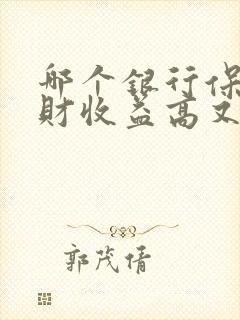 哪个银行保
财收益高又
郭茂倩